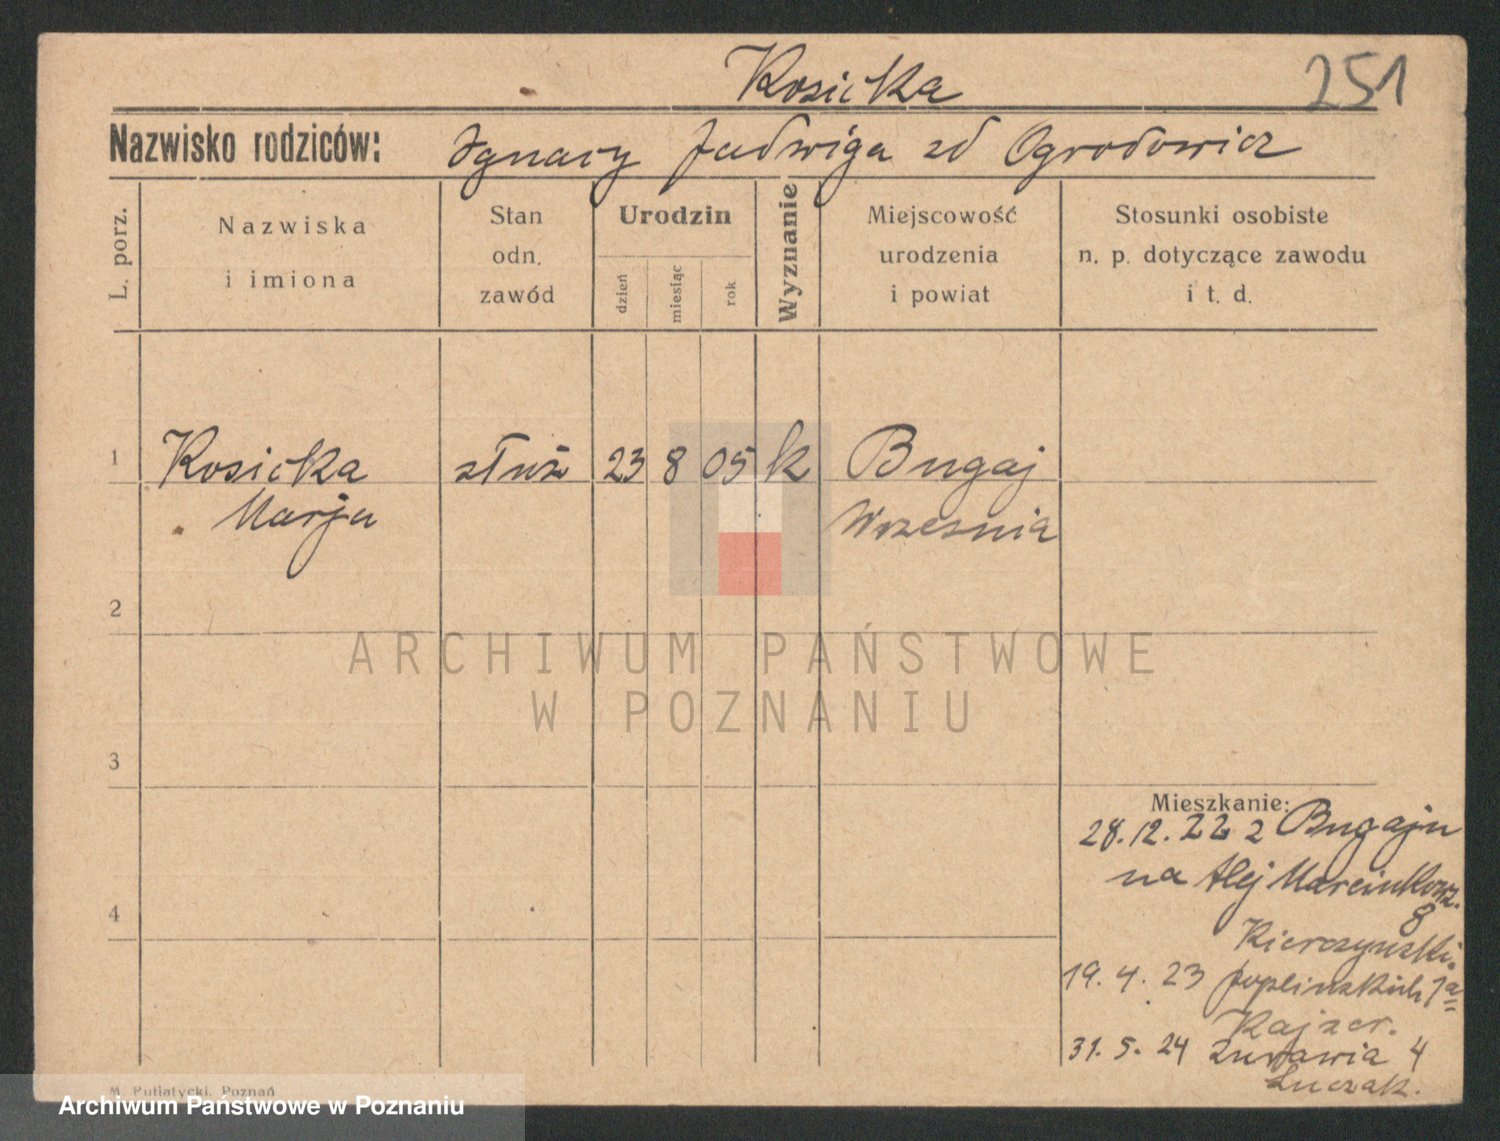 Kosicka
251
Nazwisko rodziców: Ignacy Jadwiga zd Ogrodowicz
L. porz.
Nazwiska
i imiona
Stan
odn.
zawód
Urodzin
dzień
miesiąc
rok
Wyznanie
Miejscowość
urodzenia
i powiat
Stosunki osobiste
n. p. dotyczące zawodu
i t. d.
1 Kosicka służ 23 8 05 k Bugaj
Marja Wrzesnia
2
ARCHIWUM PAŃSTWOWE
W POZNANIU
3
Mieszkanie:
28.12.22 z Bugaju
na Alej Marcinkowz.
8
4
19.4.23 1a
Kajzer.
31.5.24 Zurawia 4
Luczak.
M. Putiatycki, Poznań
Archiwum Państwowe w Poznaniu